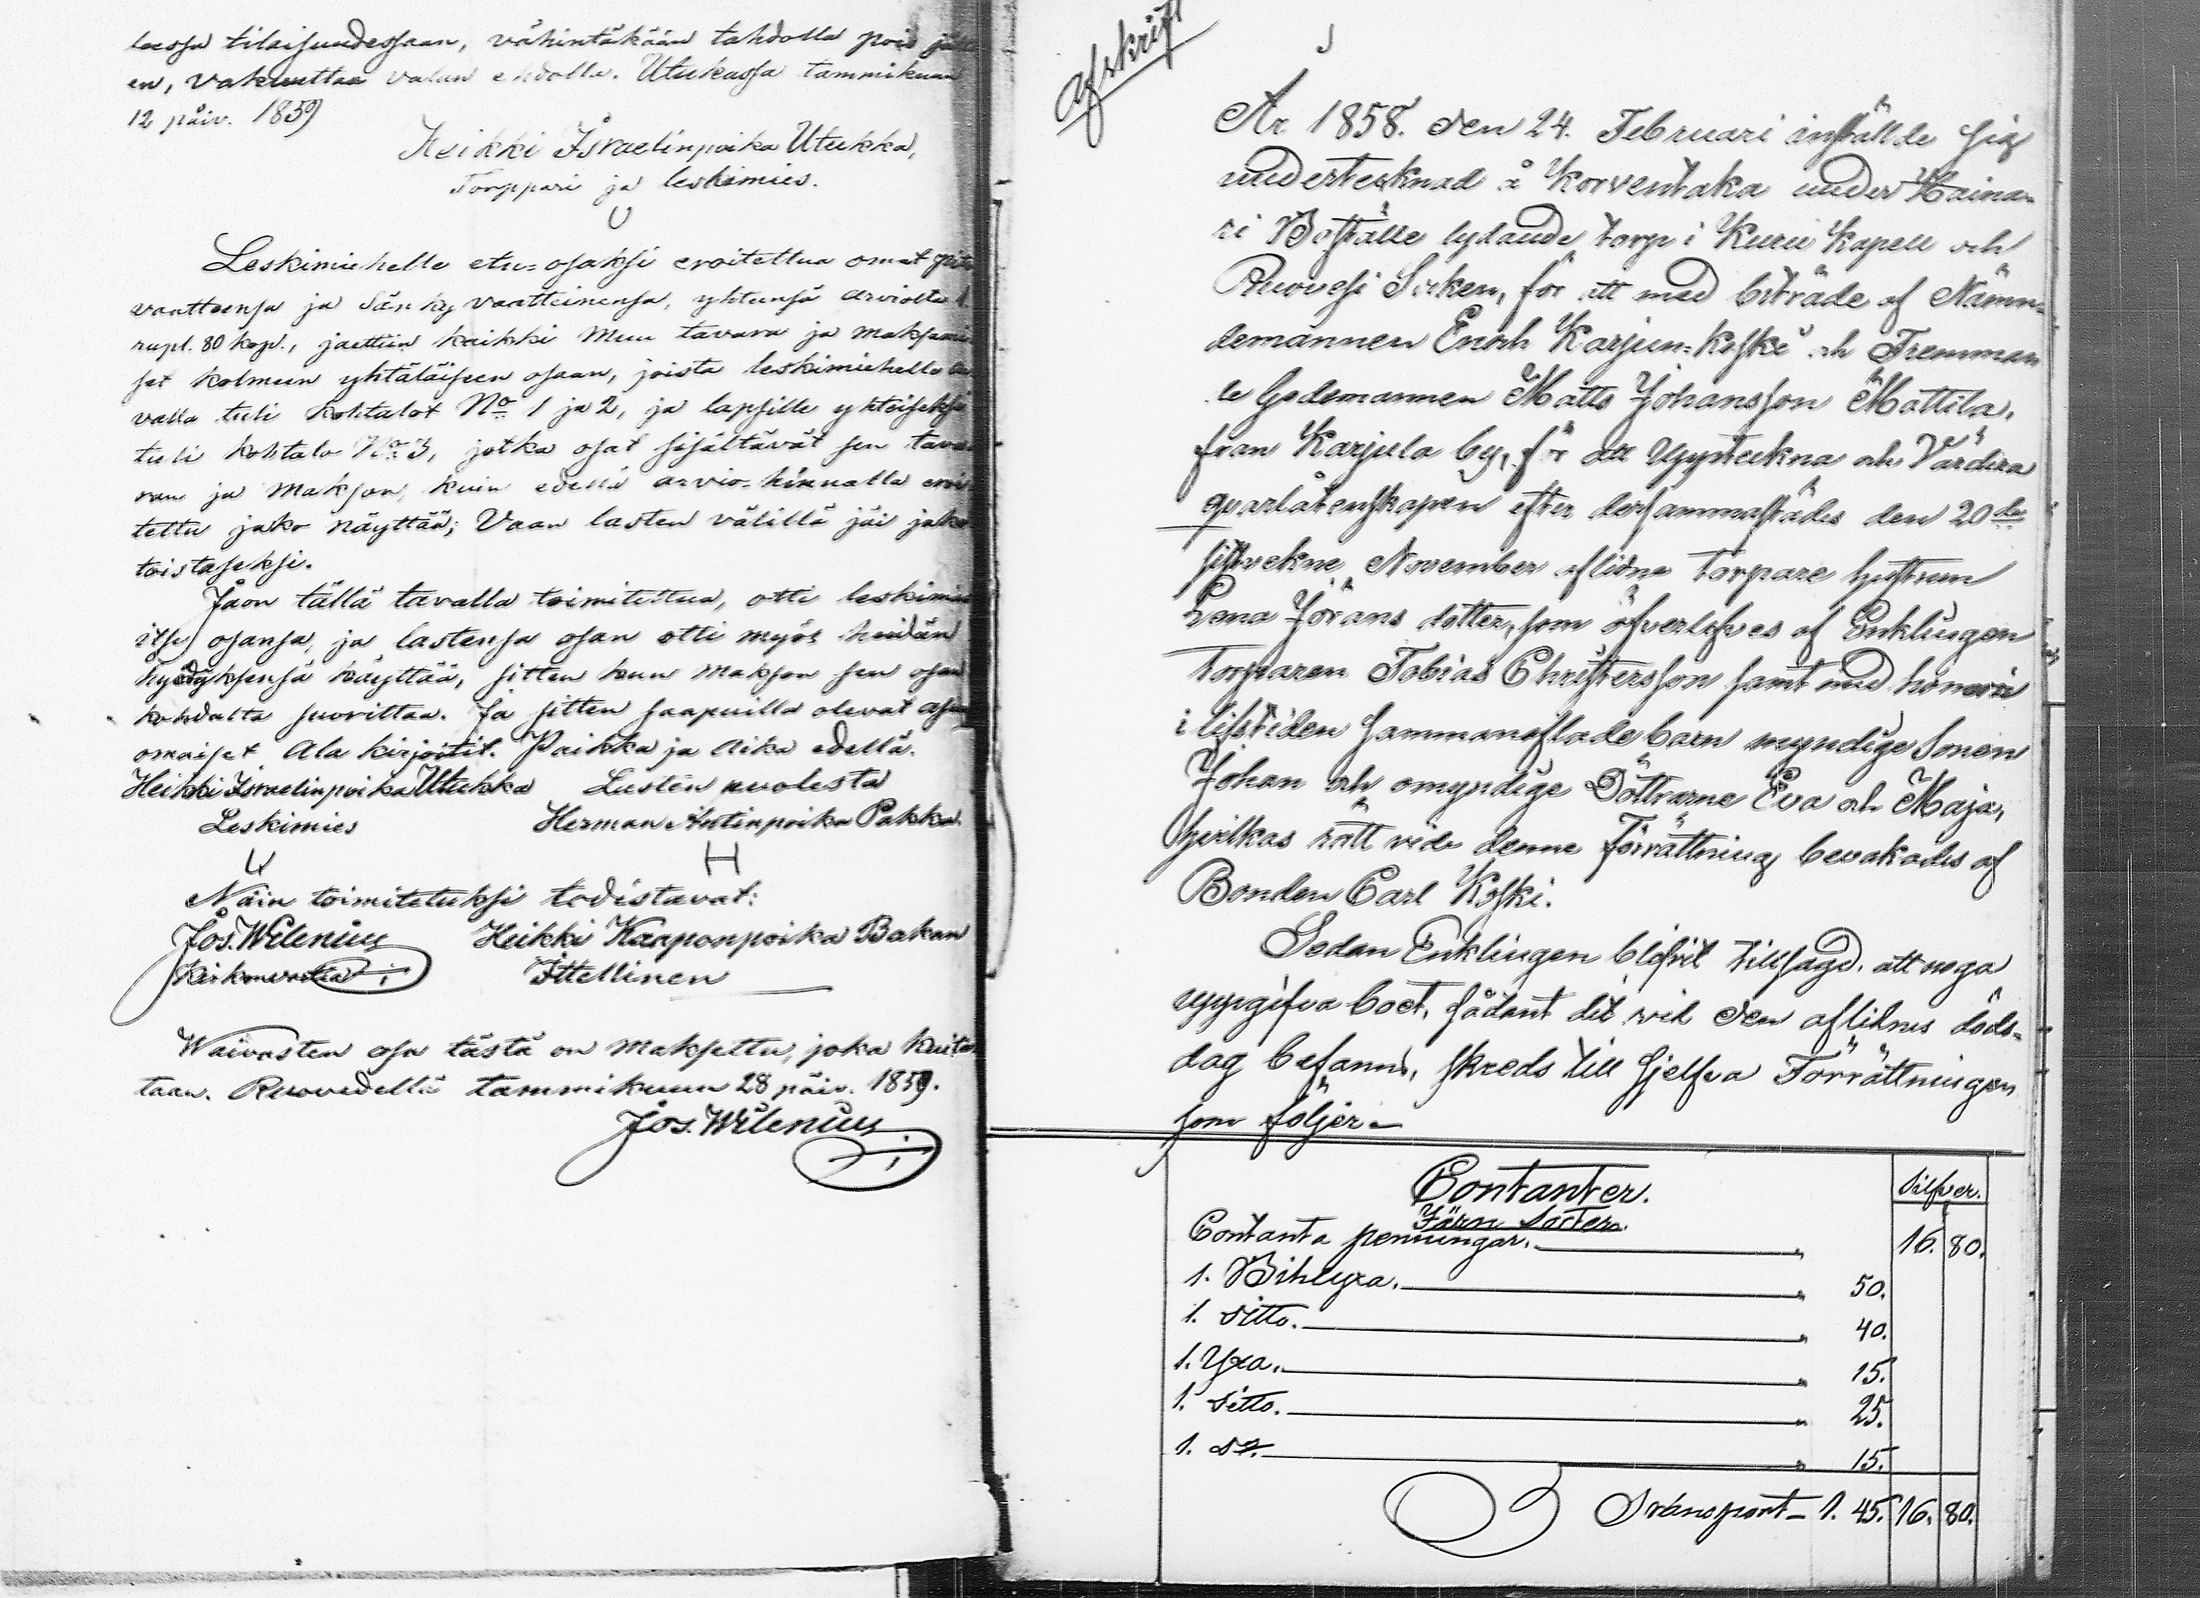 leessa tilaisuudessaan, vähintäkään tahdolla pois jätt
en, vakuuttaa valan ehdolla. Utukassa tammikuun
12 päiv. 1859
Heikki Israelinpoika Utukka,
Torppari ja leskimies.
Leskimiehelle etu-osaksi eroitettua omat pito
vaatteensa ja sänkyvaatteinensa, yhteensä arvioltu
rupl. 80 kop., jaettiin kaikki muu tavara ja maksami
set kolmeen yhtäläiseen osaan, joista leskimiehelle
valla tuli kohtalot No 1 ja 2, ja lapsille yhteiseksi
tuli kohtalo No 3, jotka osat sisältävät sen tava
ran ja makson, kuin edellä arvio-hinnalla eroi
tettu jako näyttää; Vaan lasten välillä jäi jako
toistaseksi.
Jaon tällä tavalla toimitettua, otti leskimies
itse osansa, ja lastensa osan otti myös heidän
hyödyksensä käyttää, sitten kun makson sen osan
kohdalta suorittaa. Ja sitten saapuilla olevat asian
omaiset ala kirjoitit. Paikka ja aika edellä.
Heikki Israelinpoika Utukka Lasten puolesta
Leskimies Herman Antinpoika Pakka
Näin toimitetuksi todistavat:
Jos. Wilenius Heikki Kaaponpoika Bakan
Kirkonvartia Ittellinen
Waivasten osa tästä on maksettu, joka kuita
taan. Ruovedellä tammikuun 28 päiv. 1859.
Jos. Wilenius
Afskrift
År 1858. den 24. Februari instälde sig
undertecknad å Korventaka under Haina-
ri Boställe lydande torp i Kuru Kapell och
Ruovesi Socken, för att med biträde af Nämn-
demännen Enoch Karjun-Koski och Fremman
de Godemannen Matts Johansson Mattila,
från Karjula by, för att Uppteckna och Värdera
qvarlåtenskapen efter dersammastädes den 20de
sistvekne November aflidne torpare hustrun
Lena Jörans dotter, som öfverlefves af Enklingen
Torparen Tobias Christersson samt med honom
i lifstiden sammanaflade barn myndige Sonen
Johan och omyndige Döttrarne Eva och Maja,
hvilkas rätt vid denne Förrättning bevakades af
Bonden Carl Koski.
Sedan Enklingen blifvit tillsagd, att noga
uppgifva boet, sådant det vid den aflidnes döds-
dag befanns, skreds till sjelfva Förrättningen
som följer
Contanter. Silfver.
Contanta penningar. 16. 80.
Järn Saker.
1. Bihlyxa. 50.
1. ditto. 40.
1. Yxa. 15.
1. ditto. 25.
1. do. 15.
Transport 1. 45. 16. 80.